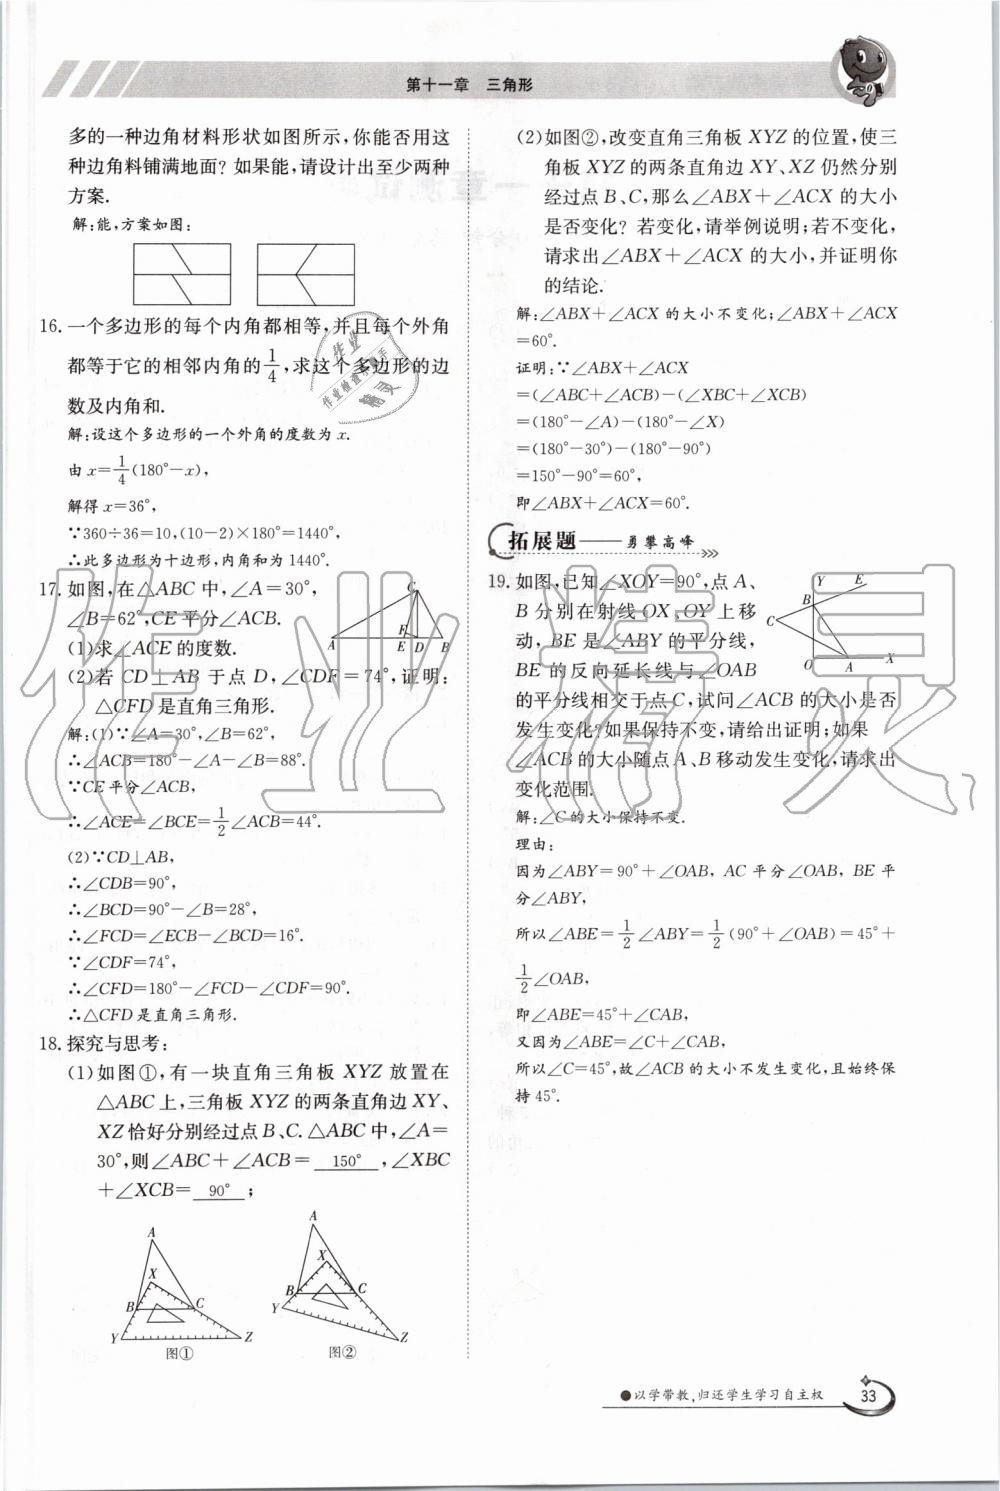 第十一章 三角形
多的一种边角材料形状如图所示,你能否用这
种边角料铺满地面?如果能,请设计出至少两种
方案.
解:能,方案如图:
16. 一个多边形的每个内角都相等,并且每个外角
都等于它的相邻内角的1/4,求这个多边形的边
数及内角和.
解:设这个多边形的一个外角的度数为x.
由x=1/4(180°-x),
解得x=36°,
∵360÷36=10,(10-2)×180°=1440°,
∴此多边形为十边形,内角和为1440°.
17. 如图,在△ABC中,∠A=30°,
∠B=62°,CE平分∠ACB.
(1)求∠ACE的度数.
(2)若CD⊥AB于点D,∠CDF=74°,证明:
△CFD是直角三角形.
解:(1)∵∠A=30°,∠B=62°,
∴∠ACB=180°-∠A-∠B=88°.
∵CE平分∠ACB,
∴∠ACE=∠BCE=1/2∠ACB=44°.
(2)∵CD⊥AB,
∴∠CDB=90°,
∴∠BCD=90°-∠B=28°,
∴∠FCD=∠ECB-∠BCD=16°.
∵∠CDF=74°,
∴∠CFD=180°-∠FCD-∠CDF=90°.
∴△CFD是直角三角形.
C
F
A E D B
18. 探究与思考:
(1)如图①,有一块直角三角板XYZ放置在
△ABC上,三角板XYZ的两条直角边XY、
XZ恰好分别经过点B、C.△ABC中,∠A=
30°,则∠ABC+∠ACB= 150° ,∠XBC
+∠XCB= 90° ;
A
X
B C
Y Z
图①
A
X
B C
Y
Z
图②
(2)如图②,改变直角三角板XYZ的位置,使三
角板XYZ的两条直角边XY、XZ仍然分别
经过点B、C,那么∠ABX+∠ACX的大小
是否变化?若变化,请举例说明;若不变化,
请求出∠ABX+∠ACX的大小,并证明你
的结论.
解:∠ABX+∠ACX的大小不变化;∠ABX+∠ACX
=60°.
证明:∵∠ABX+∠ACX
=(∠ABC+∠ACB)-(∠XBC+∠XCB)
=(180°-∠A)-(180°-∠X)
=(180°-30°)-(180°-90°)
=150°-90°=60°,
即∠ABX+∠ACX=60°.
拓展题——勇攀高峰
19. 如图,已知∠XOY=90°,点A、
B分别在射线OX、OY上移
动,BE是∠ABY的平分线,
BE的反向延长线与∠OAB
的平分线相交于点C,试问∠ACB的大小是否
发生变化?如果保持不变,请给出证明;如果
∠ACB的大小随点A、B移动发生变化,请求出
变化范围.
Y E
B
C
O A X
解:∠C的大小保持不变.
理由:
因为∠ABY=90°+∠OAB,AC平分∠OAB,BE平
分∠ABY,
所以∠ABE=1/2∠ABY=1/2(90°+∠OAB)=45°+
1/2∠OAB,
即∠ABE=45°+∠CAB,
又因为∠ABE=∠C+∠CAB,
所以∠C=45°,故∠ACB的大小不发生变化,且始终保
持45°.
●以学带教,归还学生学习自主权
33
作业精灵
作业
作业检查小助手
精灵